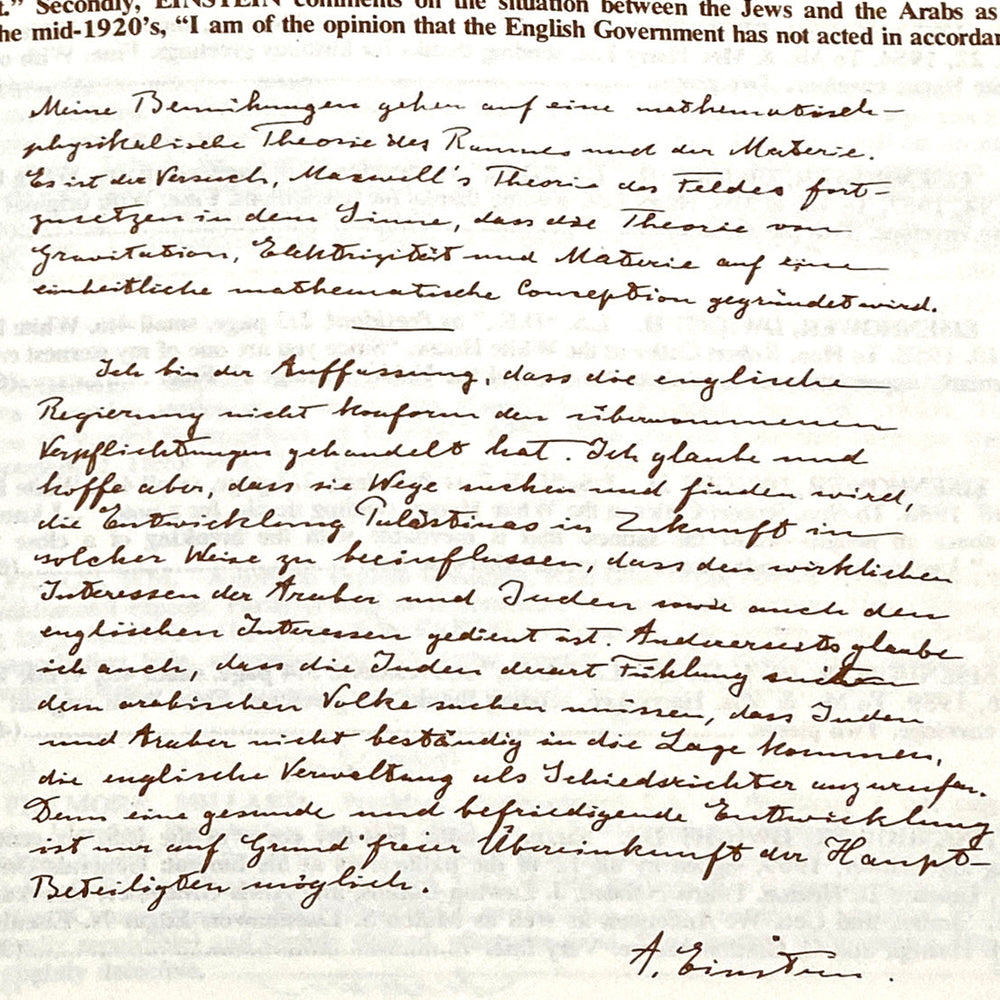 t." Secondly, EINSTEIN comments on the situation between the Jews and the Arabs as
he mid-1920's, "I am of the opinion that the English Government has not acted in accordan
Meine Bemühungen gehen auf eine mathematisch-
physikalische Theorie des Raumes und der Materie.
Es ist der Versuch, Maxwell's Theorie des Feldes fort-
zusetzen in dem Sinne, dass die Theorie von
Gravitation, Elektrizität und Materie auf eine
einheitliche mathematische Conception gegründet wird.
Ich bin der Auffassung, dass die englische
Regierung nicht konform den übernommenen
Verpflichtungen gehandelt hat. Ich glaube und
hoffe aber, dass sie Wege suchen und finden wird,
die Entwicklung Palästinas in Zukunft in
solcher Weise zu beeinflussen, dass den wirklichen
Interessen der Araber und Juden sowie auch den
englischen Interessen gedient ist. Andererseits glaube
ich auch, dass die Juden derart Fühlung mit
dem arabischen Volke suchen müssen, dass Juden
und Araber nicht beständig in die Lage kommen,
die englische Verwaltung als Schiedsrichter anzurufen.
Denn eine gesunde und befriedigende Entwicklung
ist nur auf Grund freier Übereinkunft der Haupt-
Beteiligten möglich.
A. Einstein.